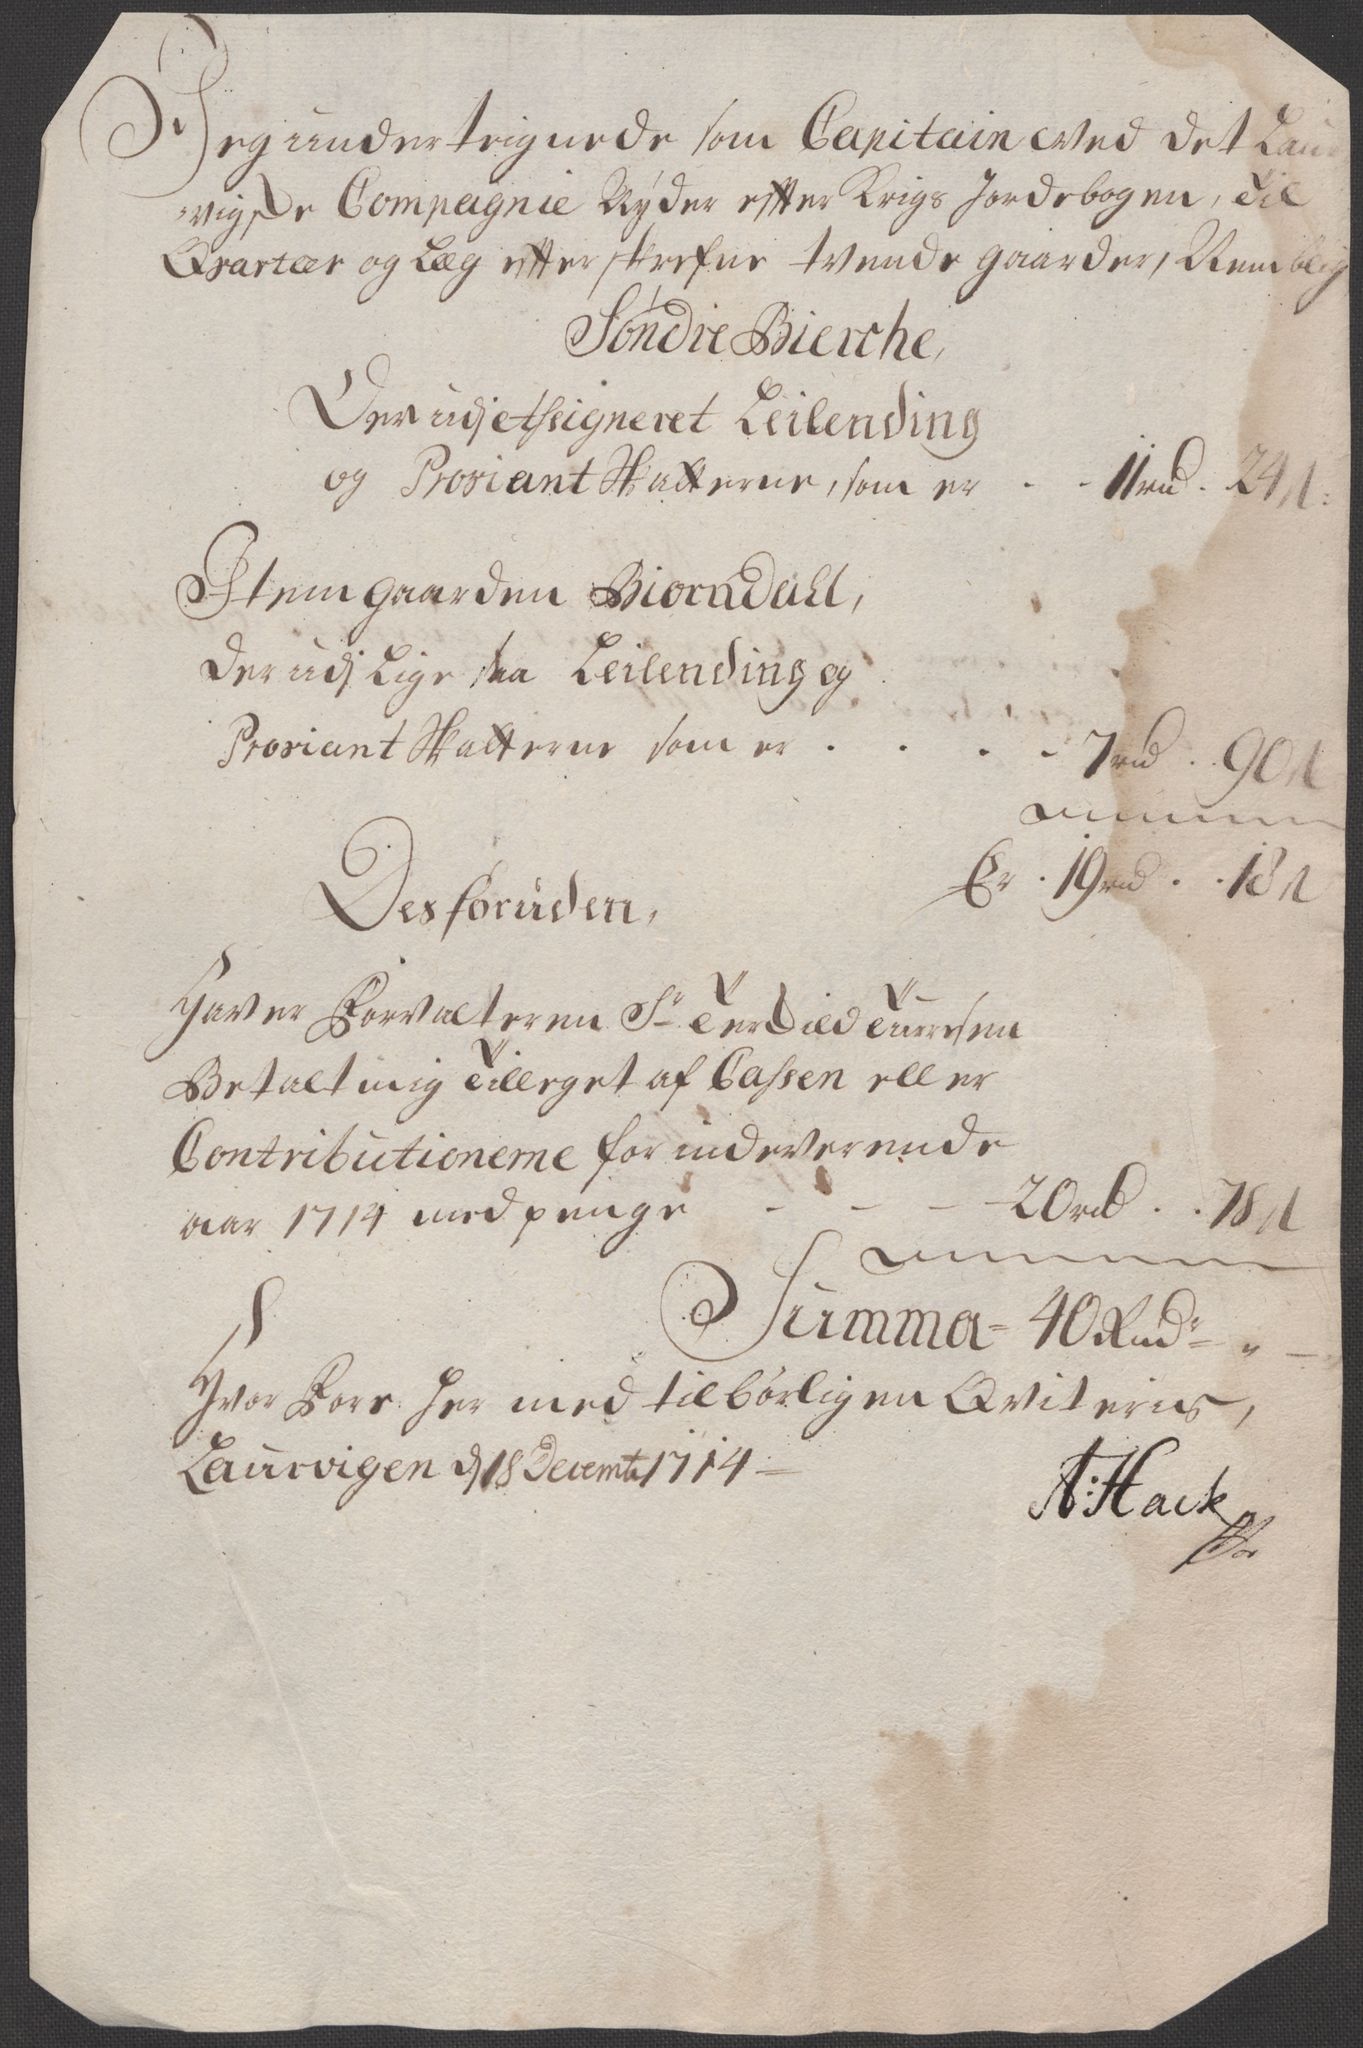 Jeg undertegnede som Capitain wed det Laur
wigske Compagnie Nÿder effter Krigs Jordebogen, Til
Qvarteer og Læg effterskrefne tvende gaarder, Nemblig
Søndre Bierche,
Der udj Assigneret Leilending
og Proviant Skatterne, som er - - 11 rd. 24 s:
Item gaarden Biørndall,
der udj Lige saa Leilending og
Proviant Skatterne som er . . . - 7 rd . . 90 s
Er . 19 rd . . 18 s
Desforuden,
Haver Forvalteren Sr Terkild Turresen
Betalt mig Tilleget af Cassen eller
Contributionerne for indeverende
aar 1714 med penge - - - 20 rd . . 78 s
Summa = 40 Rdr „ —
Hvor Fore her med tilbørligen Qviteris,
Laurvigen dj 18 Decembr 1714 —
A: Hack